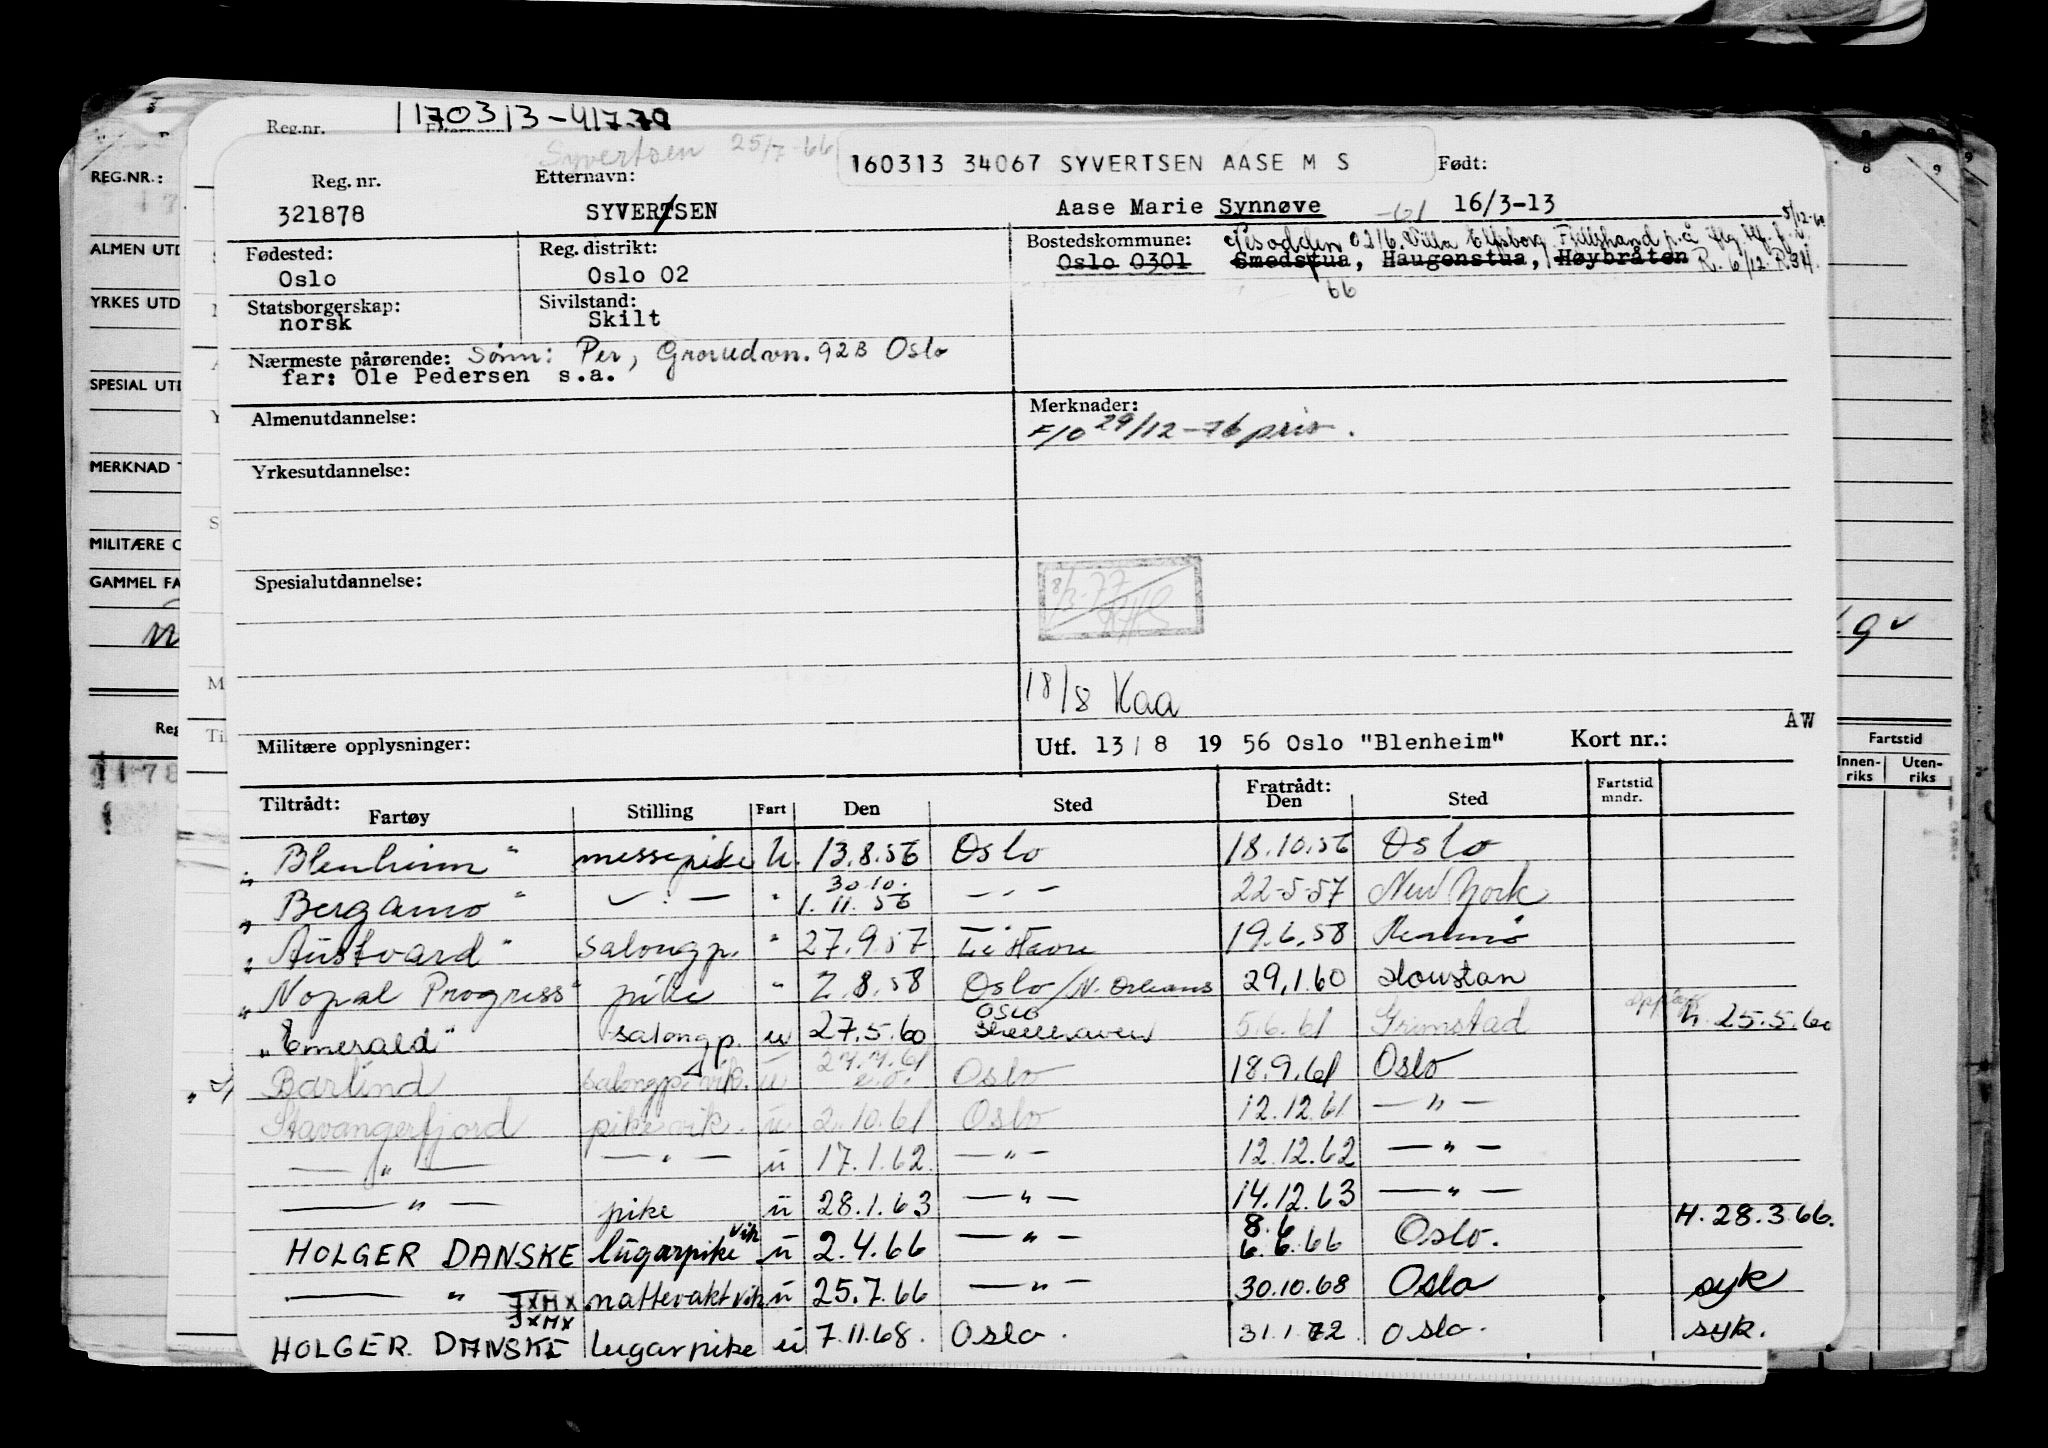 Reg.nr. 170313-41770
Syvertsen 25/7-66
160313 34067 SYVERTSEN AASE M S
Reg. nr. Etternavn: Født:
321878 SYVERTSEN Aase Marie Synnøve -61 16/3-13
Fødested: Reg. distrikt: Bostedskommune: Nesodden 0216. Villa Elfsborg Fjellstrand p.å 5/12-60
Oslo Oslo 02 Oslo 0301 Smedstua, Haugenstua, Høybråten R. 6/12. R34.
66
Statsborgerskap: Sivilstand:
norsk Skilt
Nærmeste pårørende: Sønn: Per, Grorudvn. 92B Oslo
far: Ole Pedersen s.a.
Almenutdannelse: Merknader:
F/O 29/12-76 priv.
Yrkesutdannelse:
Spesialutdannelse:
8/3-77
18/8 Kaa
AW
Militære opplysninger: Utf. 13/8 19 56 Oslo "Blenheim" Kort nr.:
Tiltrådt: Fratrådt: Fartstid mndr.
Fartøy Stilling Fart Den Sted Den Sted
"Blenheim" messepike u. 13.8.56 Oslo 18.10.56 Oslo
30.10.
"Bergamo" — " — " 1.11.56 — " — 22-5-57 New York
"Austvard" salongp. " 27.9.57 Le Havre 19.6.58
"Nopal Progress" pike " 2.8.58 Oslo/N. Orleans 29.1.60 Houston
Oslo
"Emerald" salongp. u 27.5.60 Shellhaven 5.6.61 Grimstad h. 25.5.60
27.7.61
Barlind salongp. vik. u Oslo 18.9.61 Oslo
Stavangerfjord pike vik. u 2.10.61 Oslo 12.12.61 — " —
— " — — " — u 17.1.62 — " — 12.12.62 — " —
— " — pike u 28.1.63 — " — 14.12.63 — " —
8.6
HOLGER DANSKE lugarpike vik u 2.4.66 — " — 6.6.66 Oslo. H. 28.3.66.
— " — nattevakt vik u 25.7.66 — " — 30.10.68 Oslo syk
HOLGER DANSKE lugarpike u 7.11.68. Oslo. 31.1.72 Oslo. syk.
REG.NR.:
ALMEN UTD
YRKES UTD
SPESIAL UTD
MERKNAD
MILITÆRE O
GAMMEL FA
Reg
Fartstid
Innen-riks Uten-riks
8 9